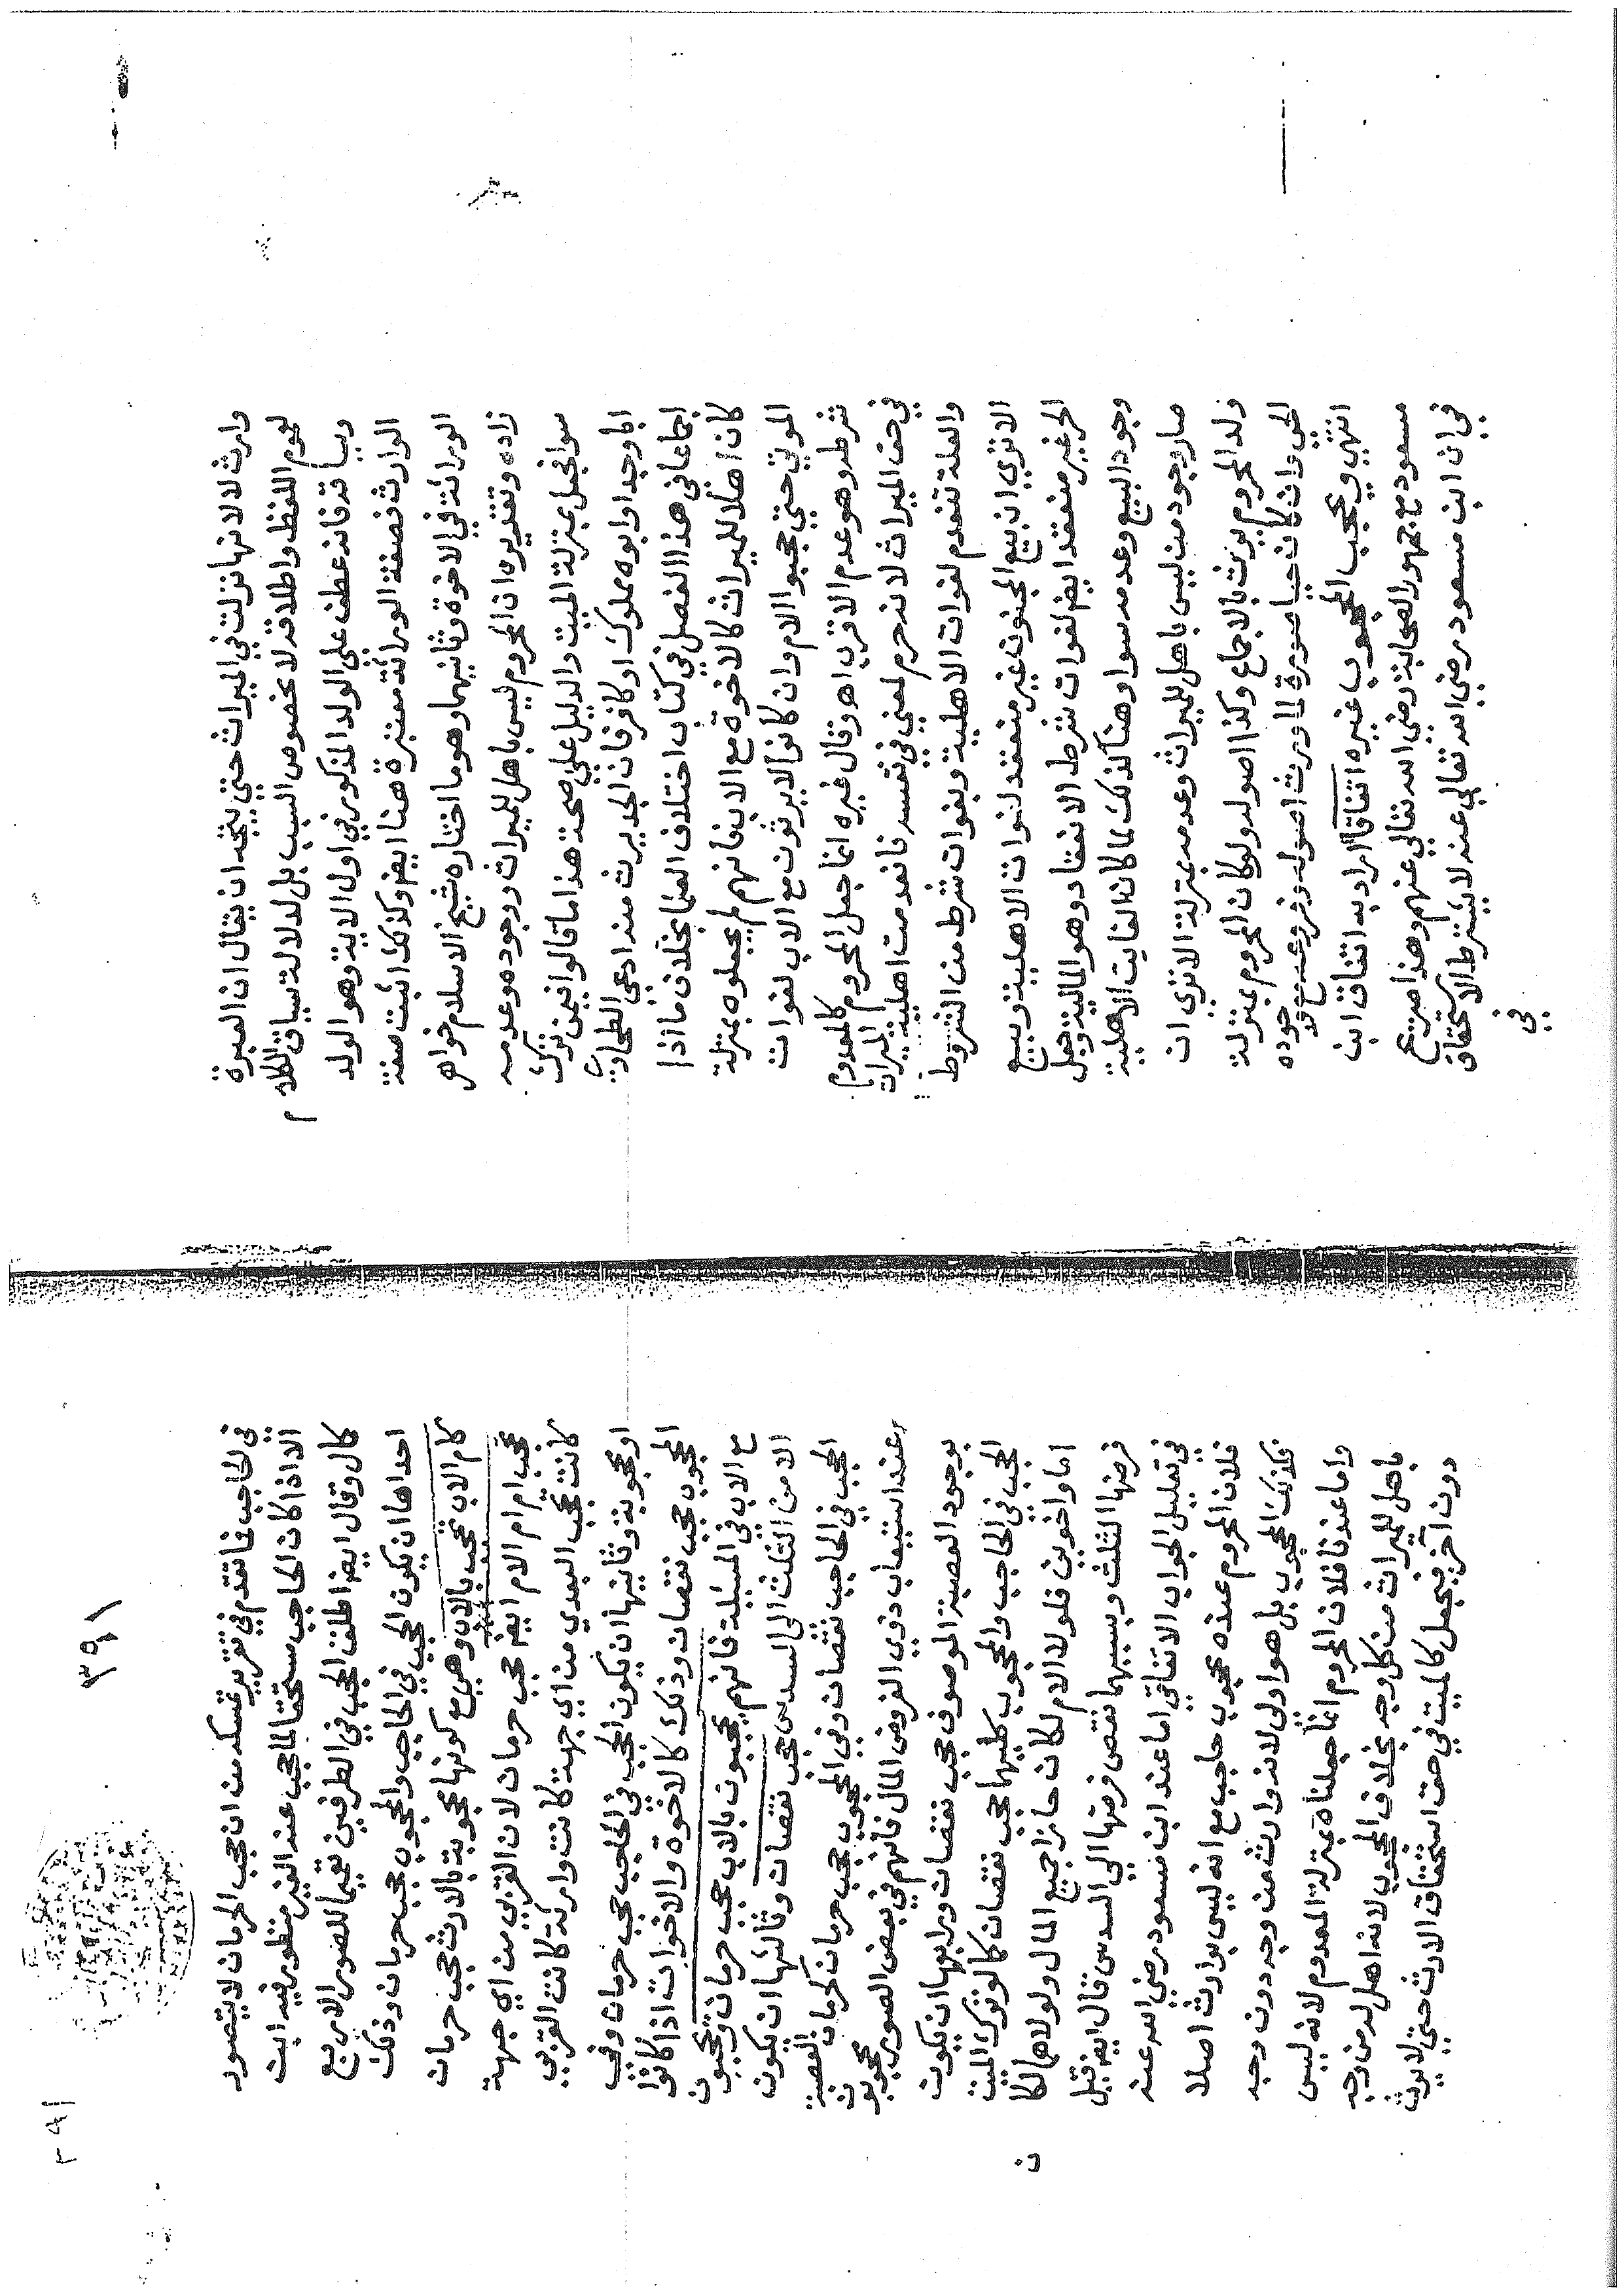 وارث لا لانها نزلت في الميراث حتي يتجه ان يقال ان العبرة
لعموم اللفظ واطلاقه لا بخصوص السبب بل لدلالة سياق الكلام
وسباقه فانه عطف علي الولد المذكور في اول الاية وهو الولد
الوارث فصفة الوراثة معتبرة هنا ايض وكذلك اثبت صفة
الوراثة في الاخوة وثانيهما وهو ما اختاره شيخ الاسلام خواهر
زاده وتقديره ان المحروم ليس باهل للميراث ووجوده وعدمه
سوا فجعل بمنزلة الميت والدليل علي صحة هذا ما قالوا فيمن ترك
ابا وجدا وابوه مملوك او كافر فان الجد يرث منه ادعي الطحاوي
اجماعا في هذا الفصل في كتاب اختلاف العلما بخلاف ما اذا
كان اهلا للميراث كالاخوة مع الاب فانهم لم يجعلوه بمنزلة
الموتي حتي حجبوا الام وان كانوا لا يرثون مع الاب لفوات
شرطه وهو عدم الاقرب اه وقال غيره انما جعل المحروم كالمعدوم
في حق الميراث لانه حرم لمعني في نفسه فانعدمت اهلية الميراث
والعلة تنعدم لفوات الاهلية وبفوات شرط من الشروط
الا تري ان بيع المجنون غير منعقد لفوات الاهلية وبيع
الحر غير منعقد ايض لفوات شرط الانعقاد وهو المالية وجعل
وجود البيع وعدمه سوا وهنا كذلك لما كان الفايت الاهلية
صار وجود من ليس باهل للميراث وعدمه بمنزلة الا تري ان
ولد المحروم يرث بالاجماع وكذا اصوله ولو كان المحروم بمنزلة
الحي وان كان حيا صورة لما ورث اصوله وفروعه مع وجوده
انتهي ويحجب المحجوب غيره اتفاقا اراد به اتفاق ابن
مسعود مع جمهور الصحابة رضي الله تعالي عنهم وهذا صريح
في ان ابن مسعود رضي الله تعالي عنه لا يشترط الاستحقاق
في
٣٩١
٣٩١
في الحاجب فما تقدم في تقرير تمسكه من ان حجب الحرمان لا يتصور
الا اذا كان الحاجب مستحقا لما حجب عنه الغير منظور فيه ابن
كمال وقال ايض اطلق الحجب في الطرفين تعميما للصور الاربع
احداها ان يكون الحجب في الحاجب والمحجوب حجب حرمان وذلك
كام الاب تحجب بالاب وهي مع كونها محجوبة بالارث حجب حرمان
تحجب ام ام الام ايض حجب حرمان لان القربي من اي جهة
كانت تحجب البعدي من اي جهة كانت وارثة كانت القربي
او محجوبة وثانيتها ان يكون الحجب في الحاجب حجب حرمان وفي
المحجوب حجب نقصان وذلك كالاخوة والاخوات اذا كانوا
مع الاب في المسئلة فانهم يحجبون بالاب حجب حرمان ويحجبون
الام من الثلث الي السدس حجب نقصان وثالثها ان يكون
الحجب في الحاجب نقصان وفي المحجوب حجب حرمان كحرمان العصبة
عند استيعاب ذوي الفروض المال فانهم في بعض الصور محجوبون
بوجود العصبة الموصوف حجب نقصان ورابعها ان يكون
الحجب في الحاجب والمحجوب كليهما حجب نقصان كما لو ترك الميت
اما واخوين فلولا الام لكان حايزا جميع المال ولولاهما لكان
فرضها الثلث وبسببهما نقص فرضها الي السدس قال ايض قيل
في تعليل الجواب الاتفاقي اما عند ابن مسعود رضي الله عنه
فلان المحروم عنده محجوب حاجب مع انه ليس بوارث اصلا
فكذلك المحجوب بل هو اولي لانه وارث من وجه دون وجه
واما عندنا فلان المحروم انما جعلناه بمنزلة المعدوم لانه ليس
باهل للميراث من كل وجه بخلاف المحجوب لانه اهل له من وجه
دون آخر فيجعل كالميت في حق استحقاق الارث حتي لا يرث